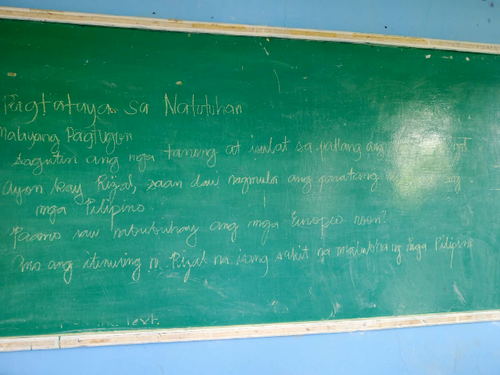 Pagtataya sa Natutuhan
Malayang Pagtugon
Sagutin ang mga tanung at isulat sa patlang ang
Ayon kay Rizal, saan daw nagmula ang
mga Pilipino.
Paano raw nabubuhay ang mga Europeo noon?
Ano ang itinuring ni Rizal na isang sakit na mga Pilipino
text.